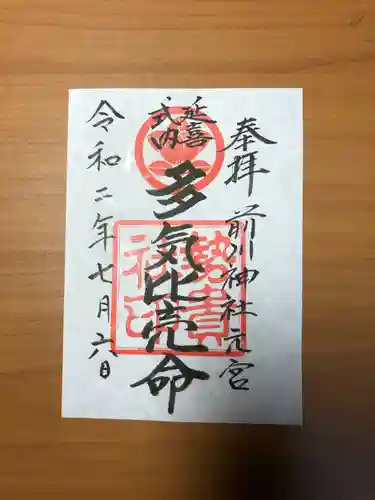 奉拝
前川神社元宮
延喜
式内
多気比売命
勢貴
社印
令和二年七月六日